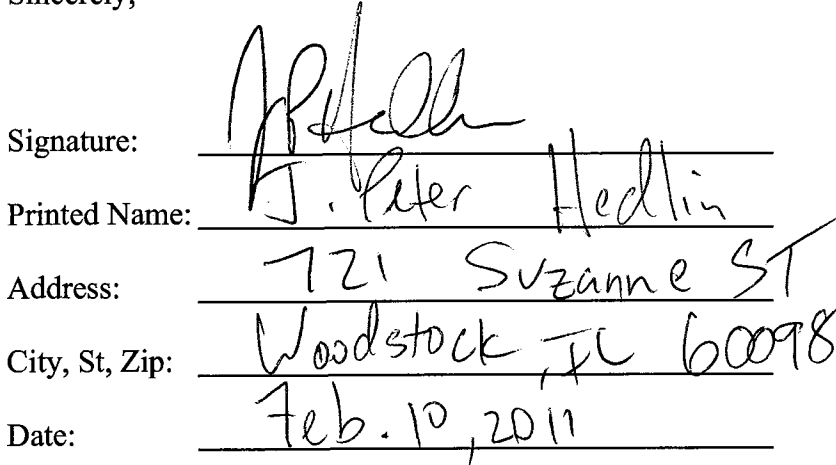 Sincerely,
Signature:
Printed Name: J. Peter Hedlin
Address: 721 Suzanne ST
City, St, Zip: Woodstock, IL 60098
Date: Feb. 10, 2011